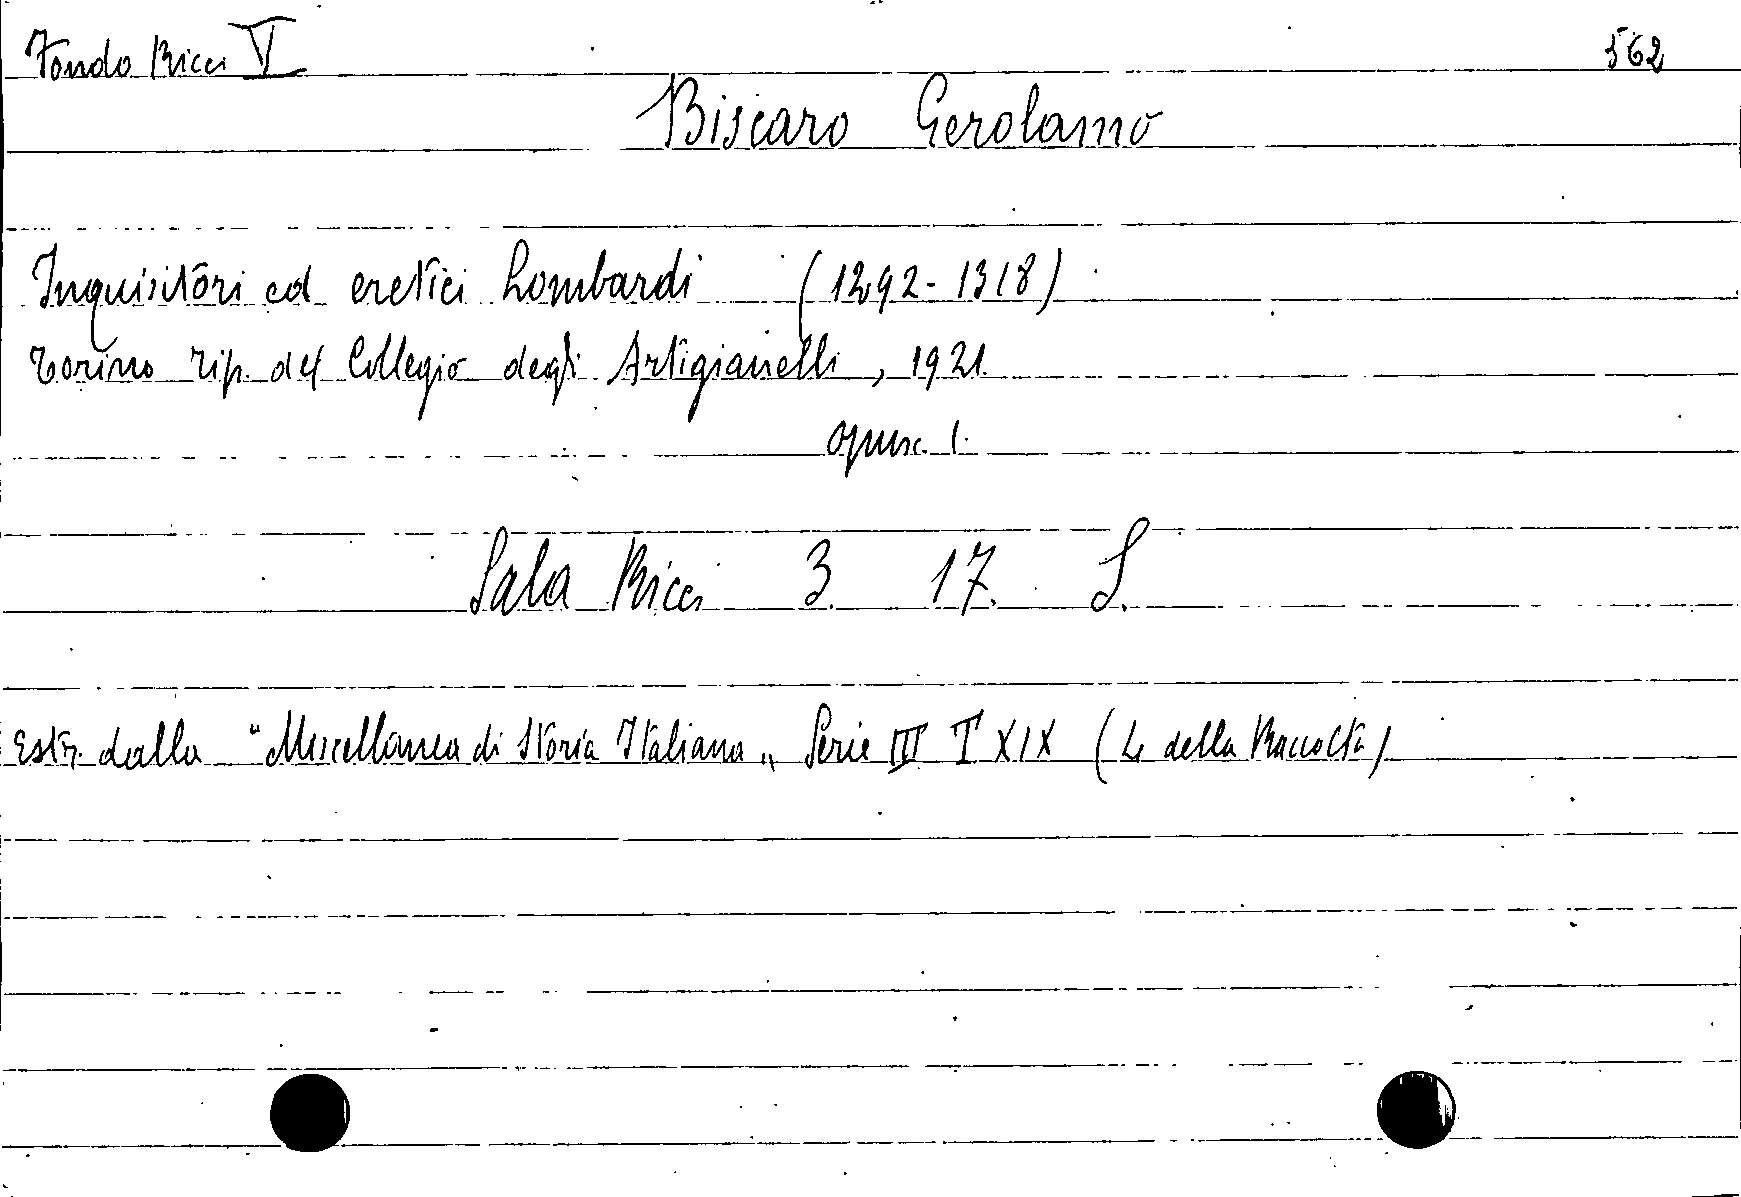 Fondo Ricci V 562
Biscaro Gerolamo
Inquisitori ed eretici Lombardi (1292-1318)
Torino Tip. del Collegio degli Artigianelli, 1921
opusc. 1.
Sala Ricci 3. 17. S.
Estr. dalla "Miscellanea di Storia Italiana„ Serie III T XIX (L della Raccolta)